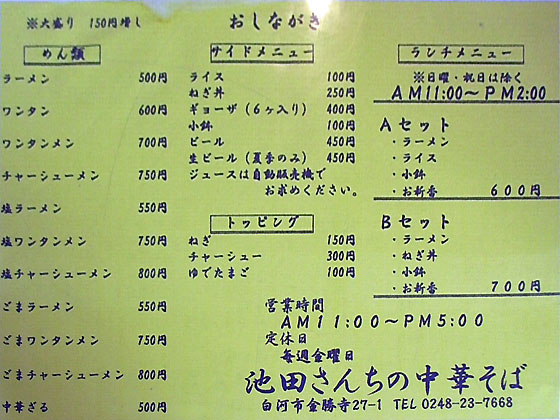 ※大盛り 150円増し
おしながき
めん類
ラーメン 500円
ワンタン 600円
ワンタンメン 700円
チャーシューメン 750円
塩ラーメン 550円
塩ワンタンメン 750円
塩チャーシューメン 800円
ごまラーメン 550円
ごまワンタンメン 750円
ごまチャーシューメン 800円
中華ざる 500円
サイドメニュー
ライス 100円
ねぎ丼 250円
ギョーザ(6ヶ入り) 400円
小鉢 100円
ビール 450円
生ビール(夏季のみ) 450円
ジュースは自動販売機で
お求めください。
トッピング
ねぎ 150円
チャーシュー 300円
ゆでたまご 100円
ランチメニュー
※日曜・祝日は除く
AM11:00~PM2:00
Aセット
・ラーメン
・ライス
・小鉢
・お新香 600円
Bセット
・ラーメン
・ねぎ丼
・小鉢
・お新香 700円
営業時間
AM11:00~PM5:00
定休日
毎週金曜日
池田さんちの中華そば
白河市金勝寺27-1 TEL 0248-23-7668